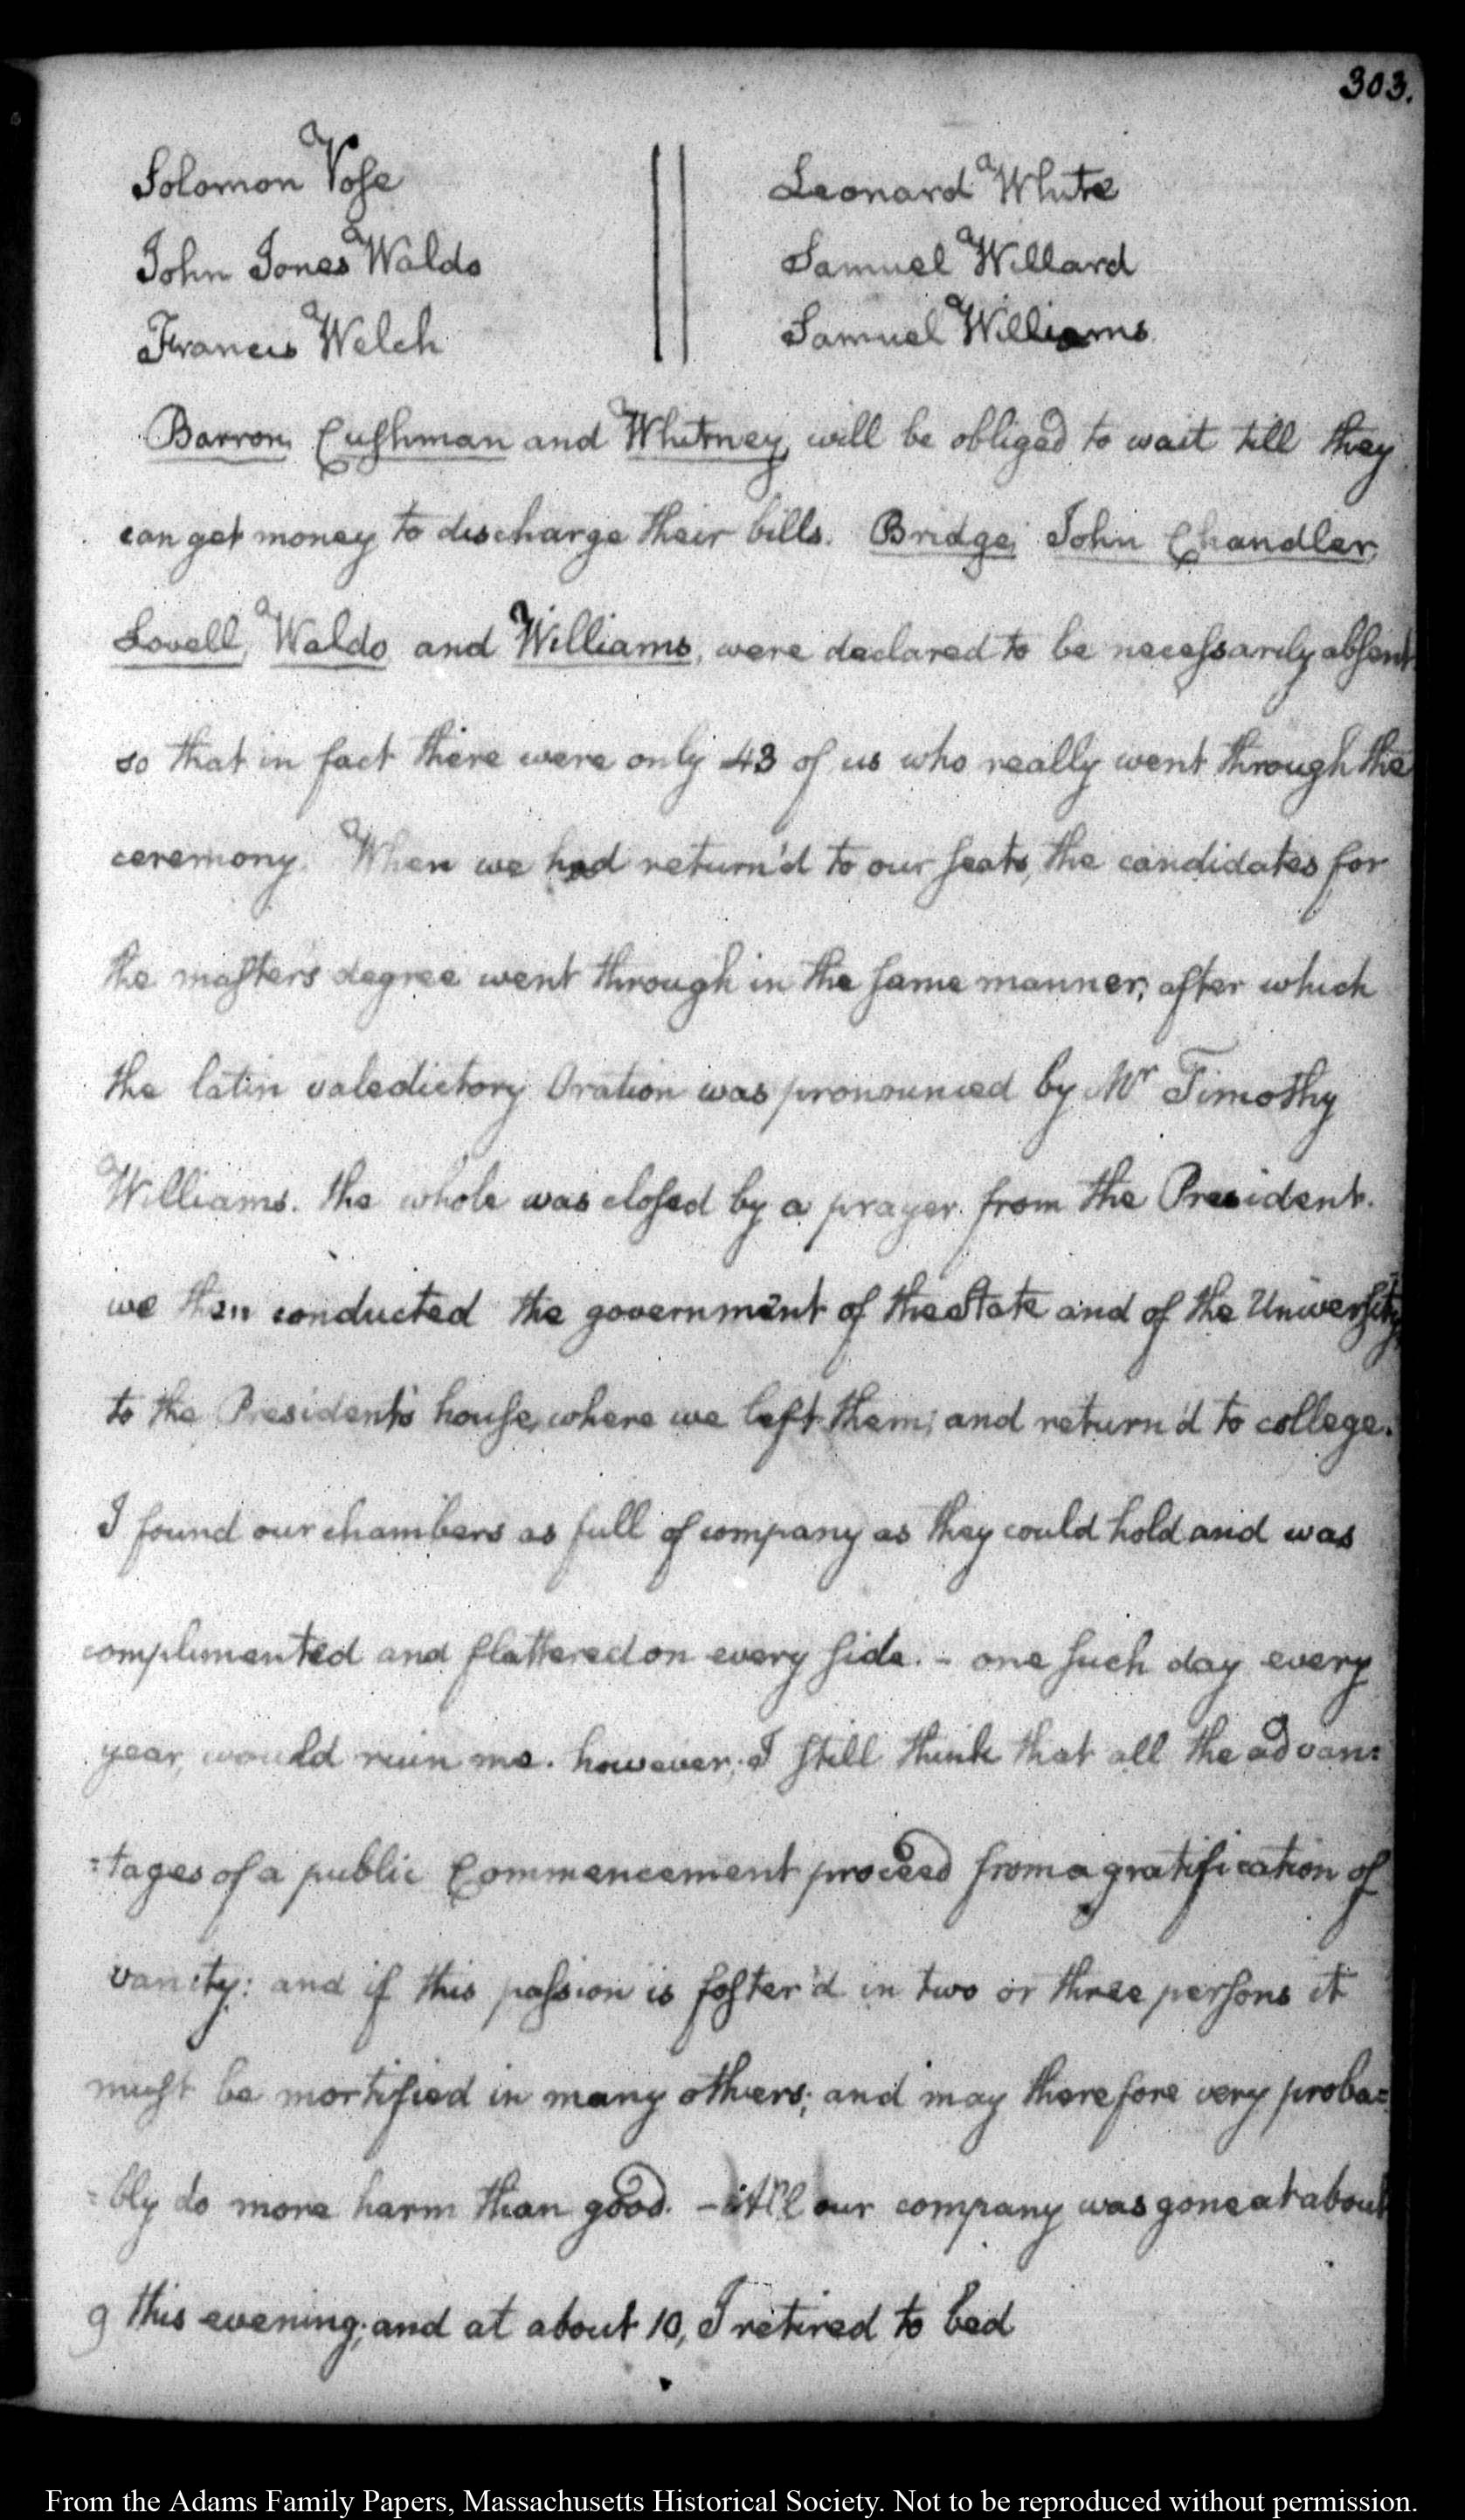 303.
Solomon Vose
Leonard White
John Jones Waldo
Samuel Willard
Francis Welch
Samuel Williams.
Barron, Cushman and Whitney, will be obliged to wait till they
can get money to discharge their bills. Bridge, John Chandler,
Lovell, Waldo and Williams, were declared to be necessarily absent.
so that in fact there were only 43 of us who really went through the
ceremony. When we had return'd to our seats, the candidates for
the masters degree went through in the same manner; after which
the latin valedictory Oration was pronounced by Mr Timothy
Williams. the whole was closed by a prayer from the President.
we then conducted the government of the State and of the University,
to the President's house, where we left them; and return'd to college.
I found our chambers as full of company as they could hold and was
complimented and flattered on every side. - one such day every
year, would ruin me. however, I still think that all the advan=
=tages of a public Commencement proceed from a gratification of
vanity: and if this passion is foster'd in two or three persons it
must be mortified in many others; and may therefore very proba=
=bly do more harm than good. - All our company was gone at about
9 this evening; and at about 10, I retired to bed
From the Adams Family Papers, Massachusetts Historical Society. Not to be reproduced without permission.